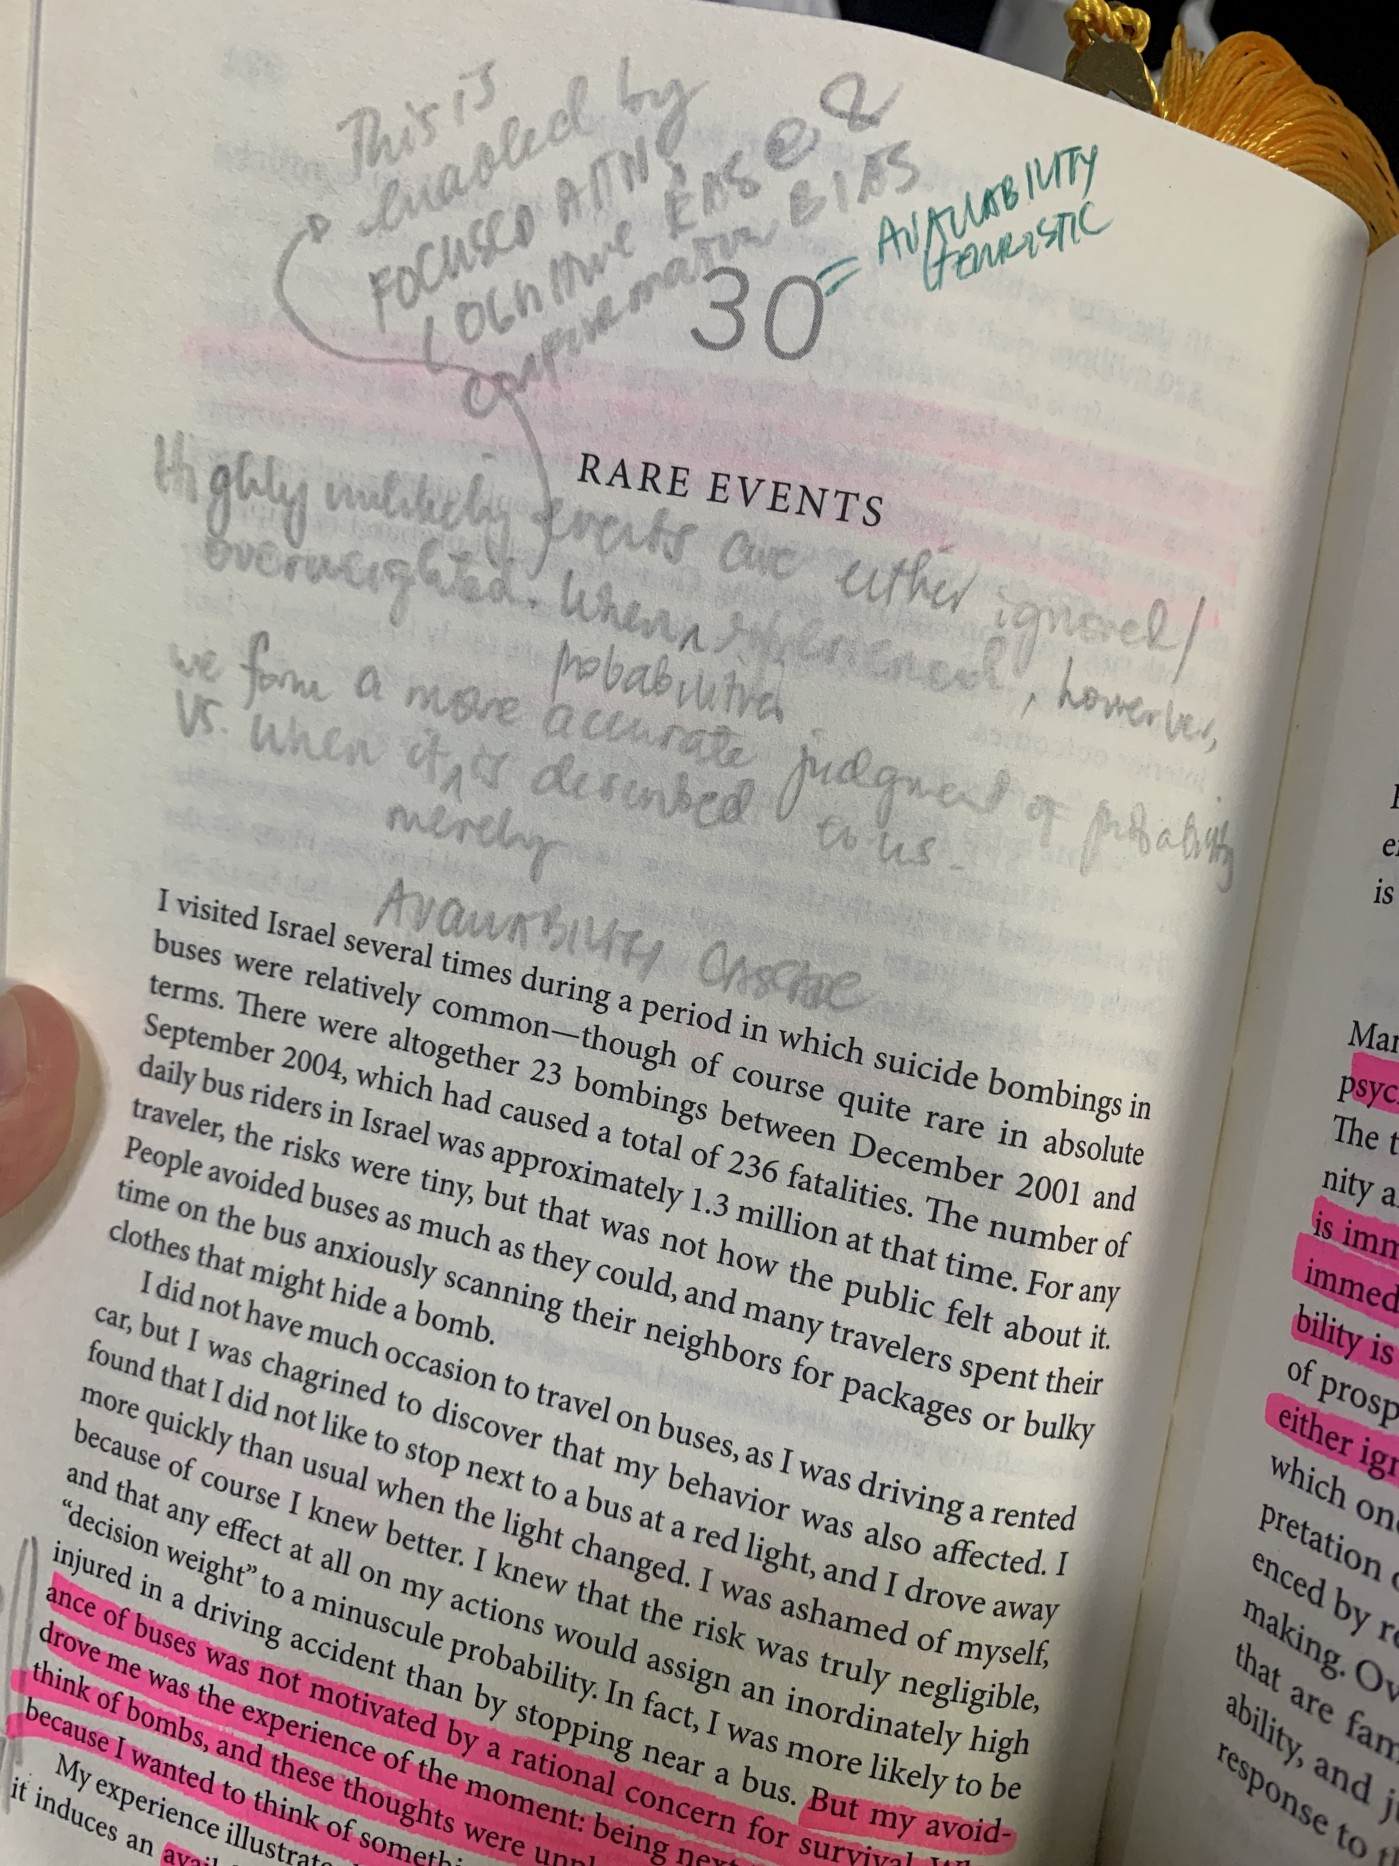 This is
enabled by
FOCUSED ATTN,
COGNITIVE EASE &
CONFIRMATION BIAS
= AVAILABILITY
HEURISTIC
30
RARE EVENTS
Highly unlikely events are either ignored/
overweighted. When experienced, however,
probabilities
we form a more accurate judgment of probability
vs. when it is described to us.
merely
AVAILABILITY CASCADE
I visited Israel several times during a period in which suicide bombings in
buses were relatively common—though of course quite rare in absolute
terms. There were altogether 23 bombings between December 2001 and
September 2004, which had caused a total of 236 fatalities. The number of
daily bus riders in Israel was approximately 1.3 million at that time. For any
traveler, the risks were tiny, but that was not how the public felt about it.
People avoided buses as much as they could, and many travelers spent their
time on the bus anxiously scanning their neighbors for packages or bulky
clothes that might hide a bomb.
I did not have much occasion to travel on buses, as I was driving a rented
car, but I was chagrined to discover that my behavior was also affected. I
found that I did not like to stop next to a bus at a red light, and I drove away
more quickly than usual when the light changed. I was ashamed of myself,
because of course I knew better. I knew that the risk was truly negligible,
and that any effect at all on my actions would assign an inordinately high
“decision weight” to a minuscule probability. In fact, I was more likely to be
injured in a driving accident than by stopping near a bus. But my avoid-
ance of buses was not motivated by a rational concern for survival.
drove me was the experience of the moment: being
think of bombs, and these thoughts were
because I wanted to think of
My experience
it induces an
is
psyc
The
nity a
is
immed
bility is
of
either
which
enced by
making.
that are
ability, and
response to